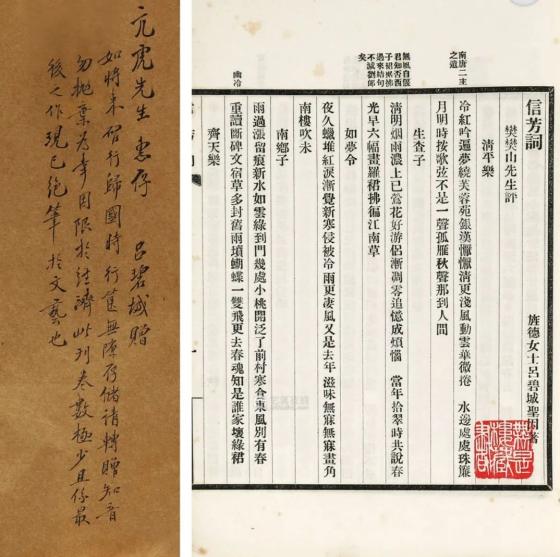 亢虎先生 惠存 呂碧城贈
如將來行歸國時行篋無隙存儲請轉贈知音
勿拋棄為幸因限於經濟此刊卷數極少且係最
後之作現已絕筆於文藝也
信芳詞 旌德女士呂碧城聖因著
樊樊山先生評
清平樂
南唐二主
之遺
冷紅吟遍夢繞芙蓉苑銀漢懨懨清更淺風動雲華微捲 水邊處處珠簾
月明時按歌弦不是一聲孤雁秋聲那到人間
生查子
無風自偃
君知否西
子裙裾拂
過來結句
不減劉郎
矣
清明烟雨濃上巳鶯花好游侶漸凋零追憶成煩惱 當年拾翠時共說春
光早六幅畫羅裙拂徧江南草
如夢令
夜久蠟堆紅淚漸覺新寒侵被冷雨更淒風又是去年滋味無寐無寐畫角
南樓吹未
南鄉子
幽冷
雨過漲留痕新水如雲綠到門幾處小桃開泛了前村寒食東風別有春
重讀斷碑文宿草多封舊雨墳蝴蝶一雙飛更去春魂知是誰家壞綠裙
齊天樂